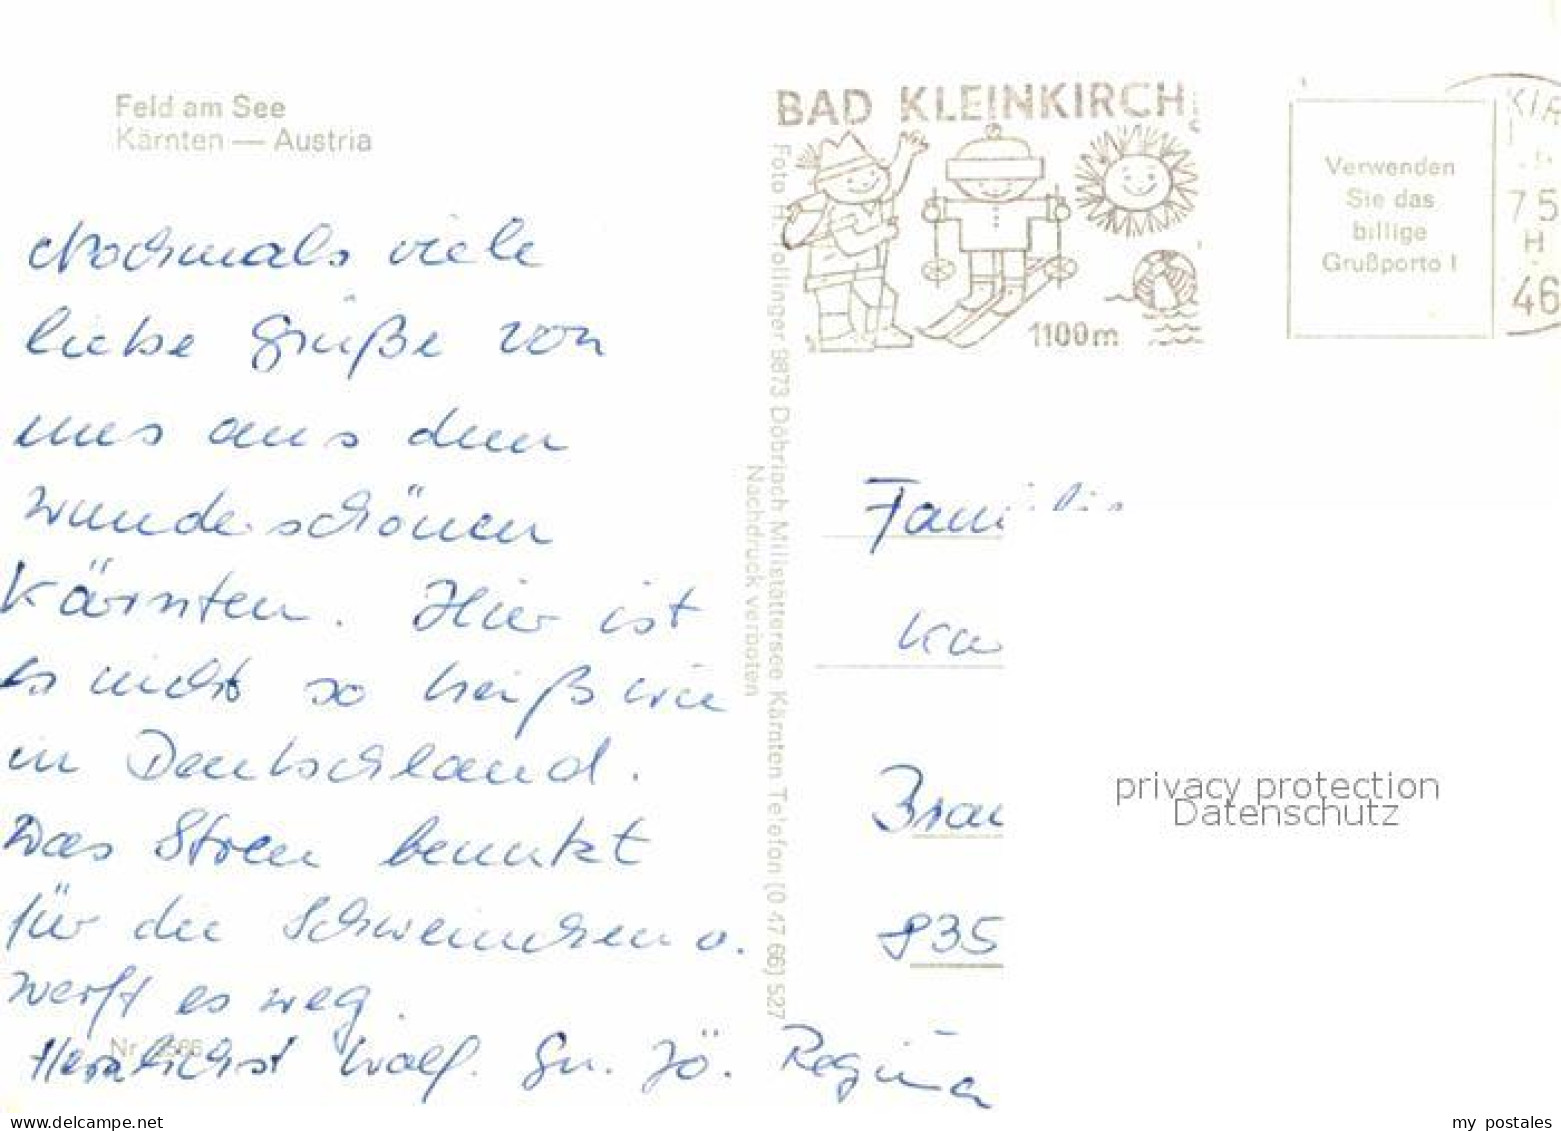 Feld am See
Kärnten — Austria
Nochmals viele
liebe Grüße von
uns aus dem
wunderschönen
Kärnten. Hier ist
es nicht so heiß wie
in Deutschland.
Das Stroh benutzt
für die Schweinchen o.
werft es weg.
Herzlichst Wolf. Gu. Jö. Regina
Nr.
Foto H. Hollinger 9873 Döbriach Millstättersee Kärnten Telefon (0 47 66) 527
Nachdruck verboten
BAD KLEINKIRCH
1100m
Verwenden
Sie das
billige
Grußporto!
KIR
75
H
46
Familie
Ka
Brau
835
privacy protection
Datenschutz
www.delcampe.net
my_postales